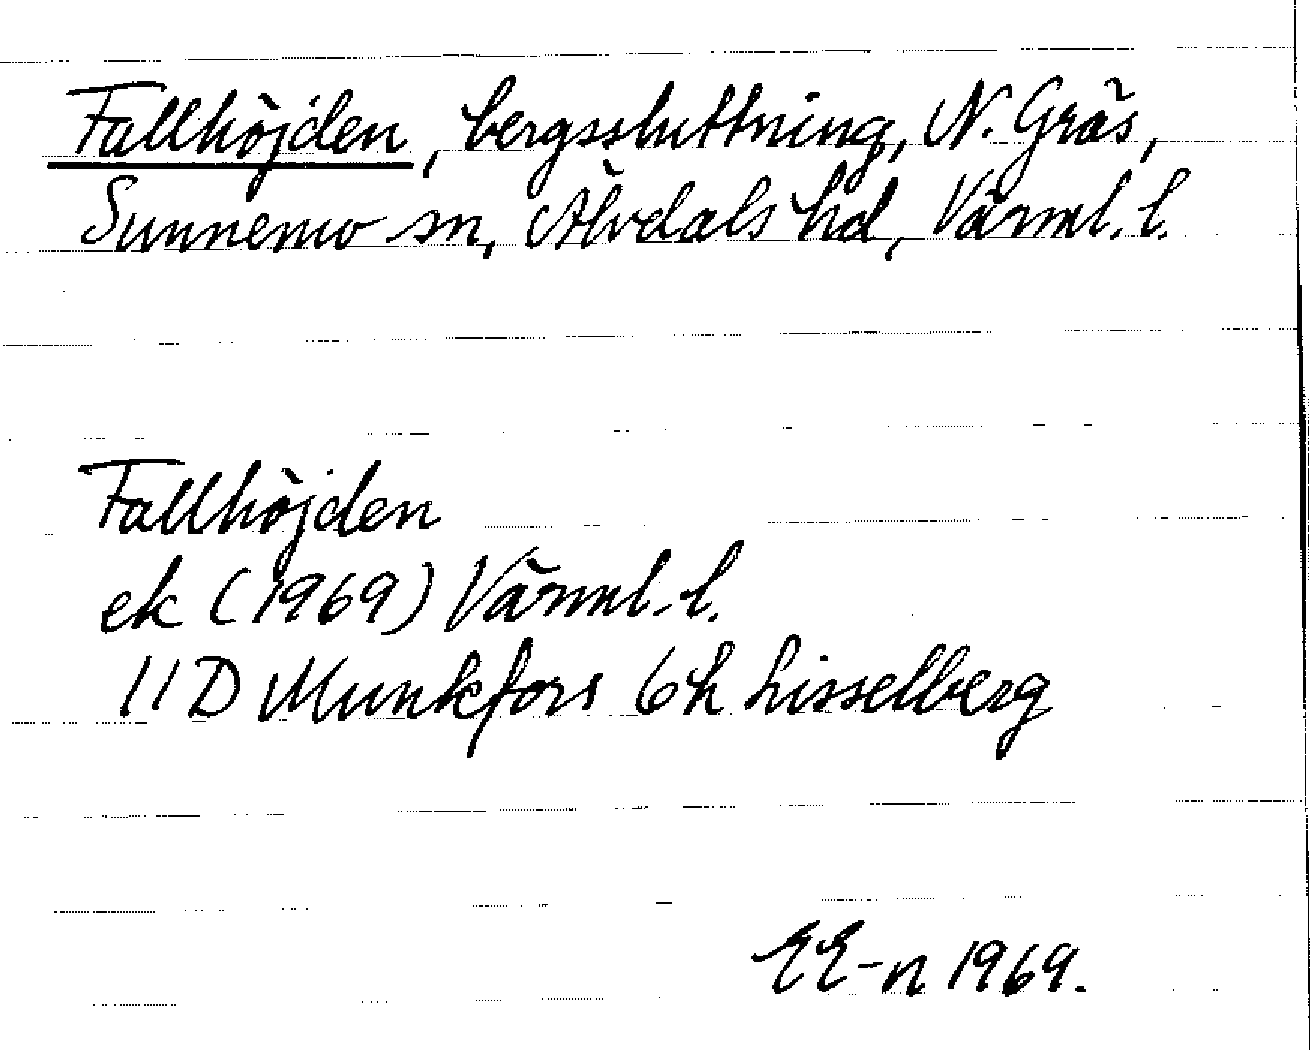 Fallhöjden, bergssluttning, N. Gräs,
Sunnemo sn, Älvdals hd, Värml. l.
Fallhöjden
ek (1969) Värml. l.
11D Munkfors 6h Lisselberg
EE-n 1969.